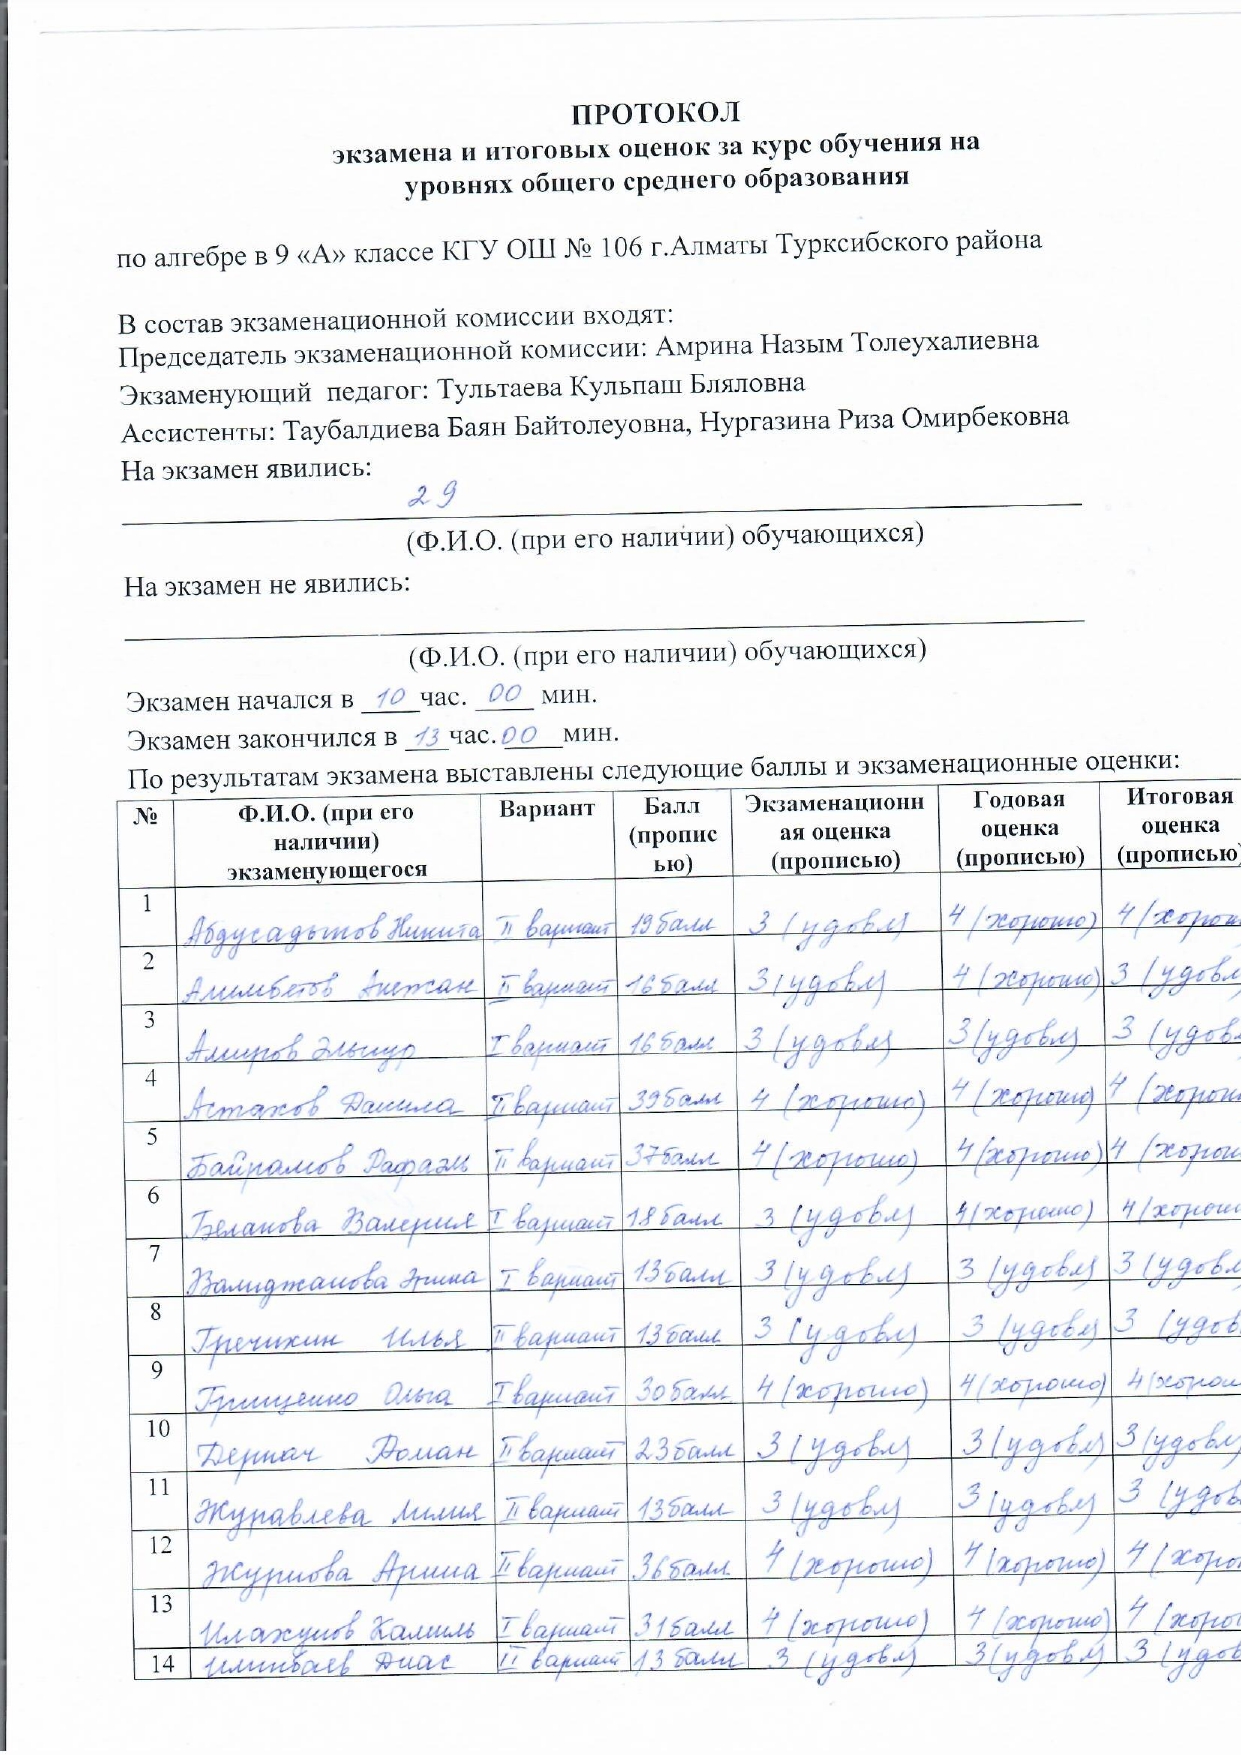 ПРОТОКОЛ
экзамена и итоговых оценок за курс обучения на
уровнях общего среднего образования
по алгебре в 9 «А» классе КГУ ОШ № 106 г.Алматы Турксибского района
В состав экзаменационной комиссии входят:
Председатель экзаменационной комиссии: Амрина Назым Толеухалиевна
Экзаменующий педагог: Тультаева Кульпаш Бляловна
Ассистенты: Таубалдиева Баян Байтолеуовна, Нургазина Риза Омирбековна
На экзамен явились:
29
(Ф.И.О. (при его наличии) обучающихся)
На экзамен не явились:
(Ф.И.О. (при его наличии) обучающихся)
Экзамен начался в 10 час. 00 мин.
Экзамен закончился в 13 час. 00 мин.
По результатам экзамена выставлены следующие баллы и экзаменационные оценки:
№ Ф.И.О. (при его наличии) экзаменующегося Вариант Балл (прописью) Экзаменационная оценка (прописью) Годовая оценка (прописью) Итоговая оценка (прописью)
1 Абдусадыков Никита II вариант 19 балл 3 (удовл) 4 (хорошо) 4 (хорош
2 Алимбетов II вариант 16 балл 3 (удовл) 4 (хорошо) 3 (удовл
3 Амиров Эльнур I вариант 16 балл 3 (удовл) 3 (удовл) 3 (удовл
4 Астахов Данила II вариант 39 балл 4 (хорошо) 4 (хорошо) 4 (хорош
5 Байрамов Рафаэль II вариант 37 балл 4 (хорошо) 4 (хорошо) 4 (хорош
6 Беланова Валерия I вариант 18 балл 3 (удовл) 4 (хорошо) 4 (хорош
7 Валиджанова I вариант 13 балл 3 (удовл) 3 (удовл) 3 (удовл
8 Гречихин Илья II вариант 13 балл 3 (удовл) 3 (удовл) 3 (удов
9 Грищенко Ольга I вариант 30 балл 4 (хорошо) 4 (хорошо) 4 (хорош
10 Деркач Роман II вариант 23 балл 3 (удовл) 3 (удовл) 3 (удовл
11 Журавлева Лилия II вариант 13 балл 3 (удовл) 3 (удовл) 3 (удов
12 Арина II вариант 36 балл 4 (хорошо) 4 (хорошо) 4 (хоро
13 Илахунов Камиль I вариант 31 балл 4 (хорошо) 4 (хорошо) 4 (хоро
14 Иминбаев Диас II вариант 13 балл 3 (удовл) 3 (удовл) 3 (удов